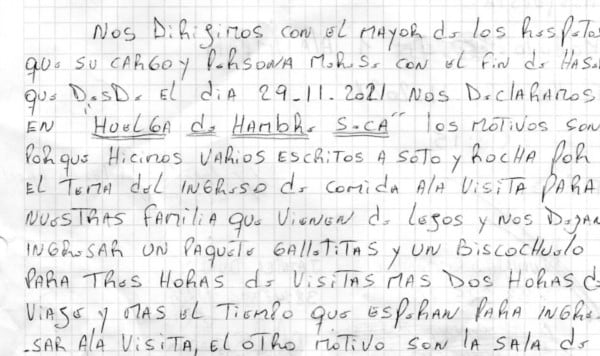 NOS DIRIGIMOS CON EL MAYOR de los RespeTos
QUe SU CARGO y PeRSONA MeReSe CON el FIN de HASe
QUe DeSDe EL diA 29-11-2021 NOS DeClARAMOS
EN "HUELGA de HAMBRe SeCA" los MOTIVOS SON
PORQUe HICIMOS VARIOS ESCRITOS A SOTO y ROCHA POR
EL TeMA del INGReSO de comidA AlA VISITA PARA
NUeSTRAS FAMiliA QUe VIeNeN de LeJOS y NOS DeJAN
INGReSAR UN PAQUeTe GAlleTiTAS y UN BISCOCHUelo
PARA TReS HORAS de VISITAS MAS DOS HORAS de
VIAJe y MAS el TIeMPO QUe ESPeRAN PARA INGRe
-SAR AlA VISITA, EL OTRO MOTIVO SON lA SAlA de